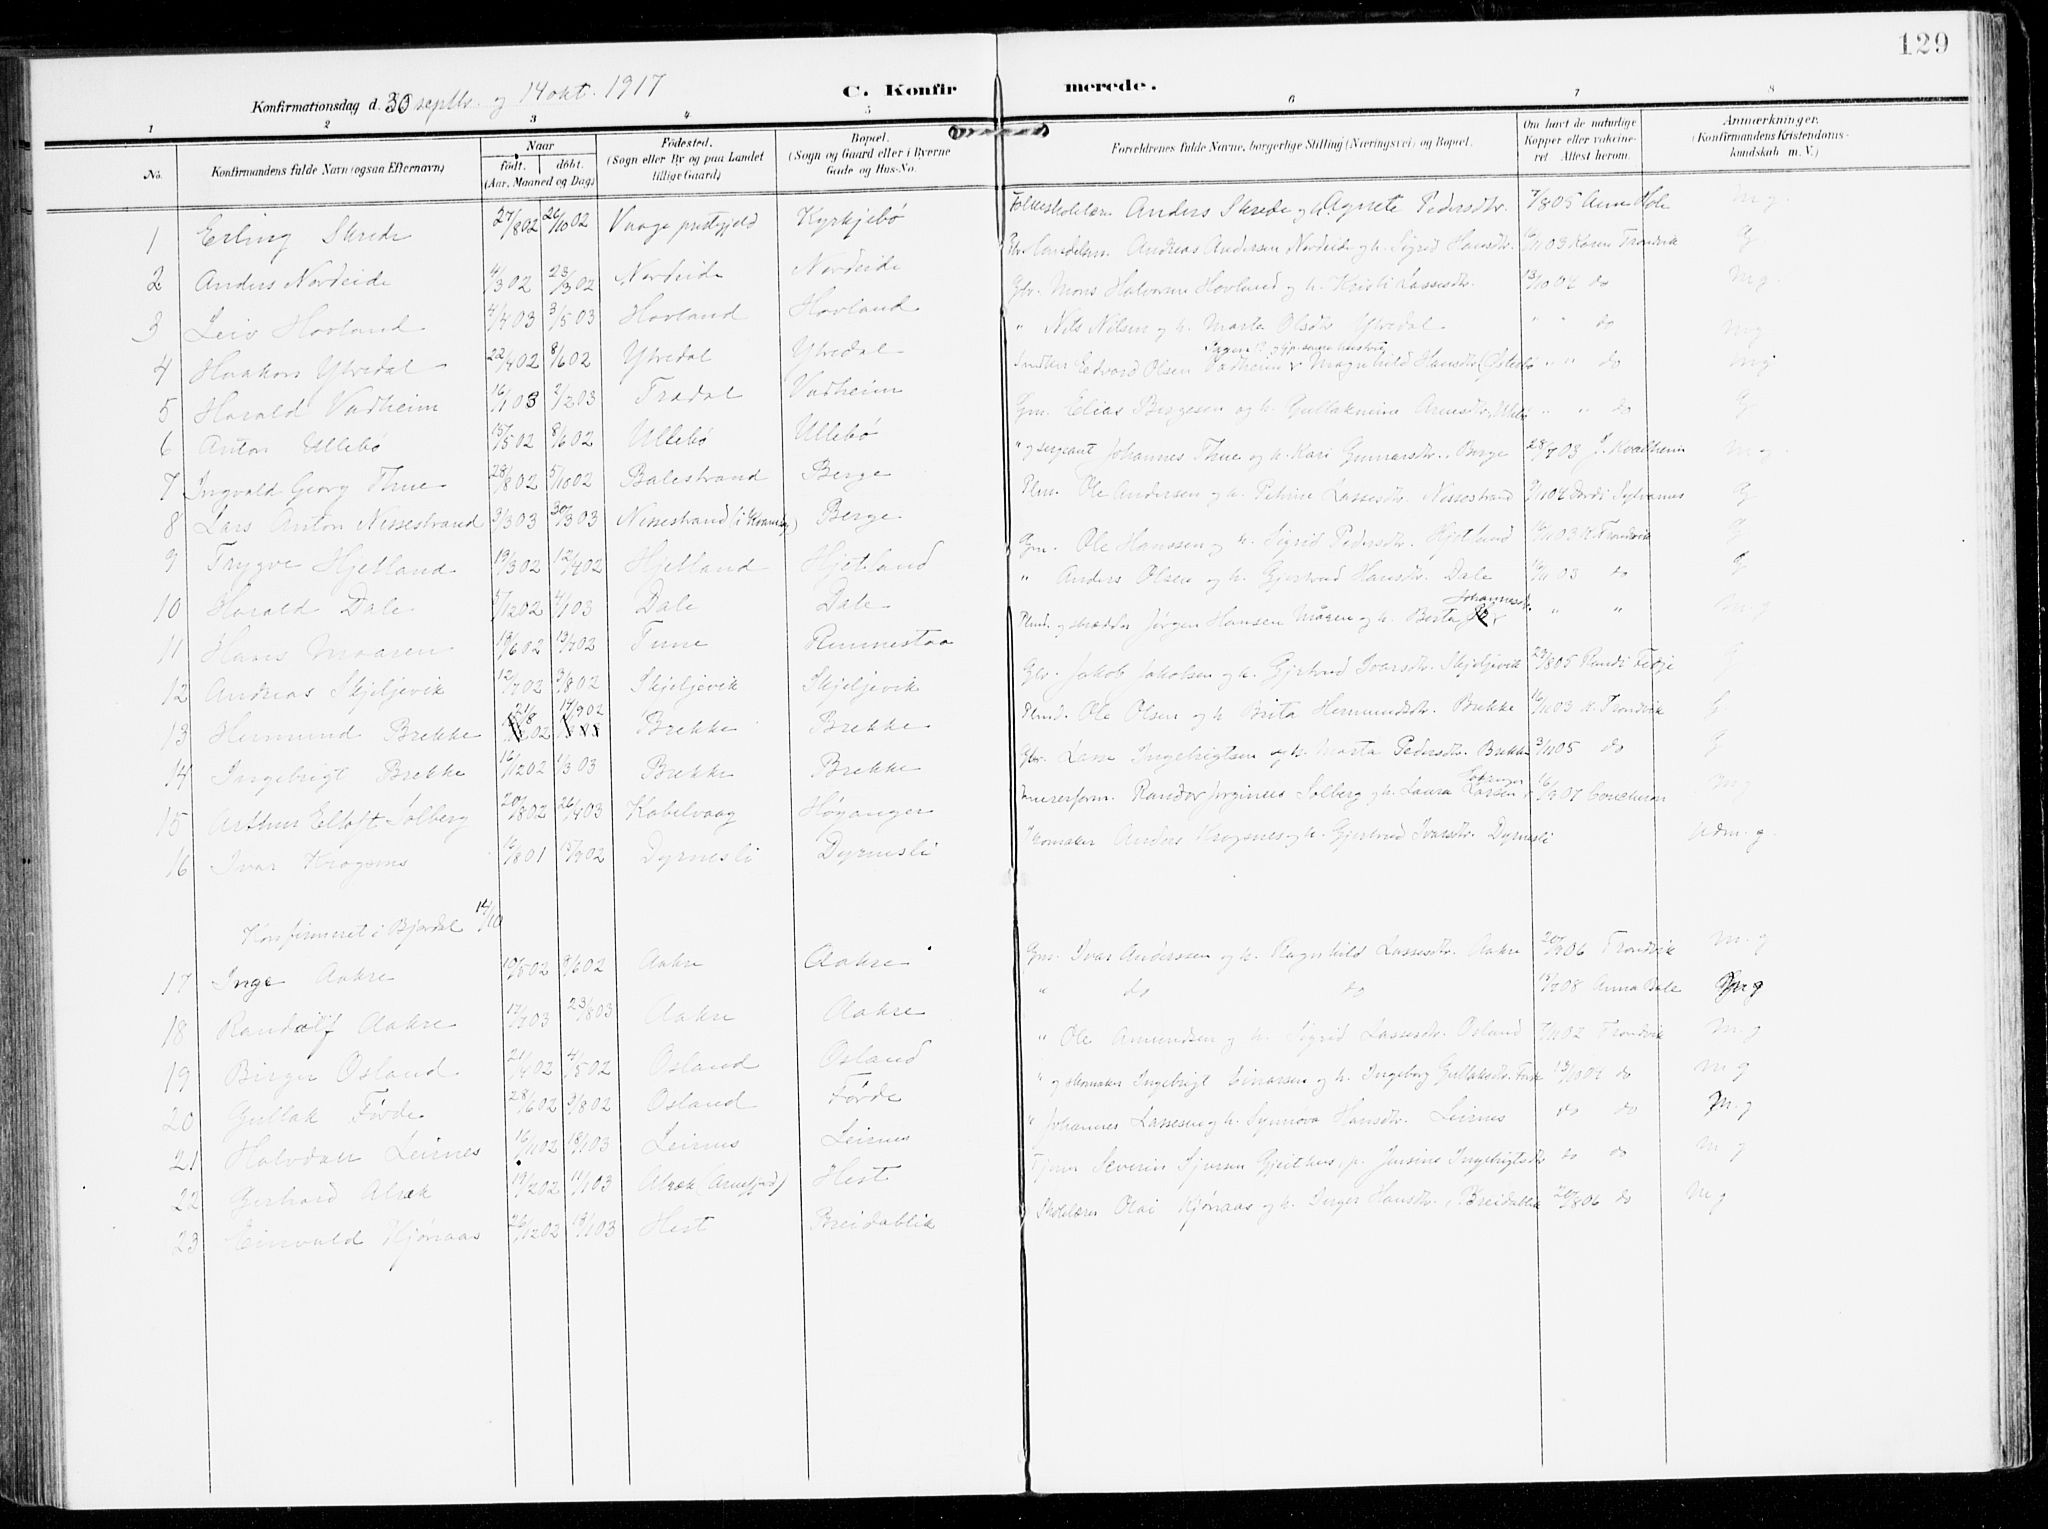 129
Konfirmationsdag d. 30 septbr. og 14 okt. 1917
C. Konfirmerede.
1 2 3 4 5 6 7 8
No. Konfirmandens fulde Navn (ogsaa Efternavn) Naar født. døbt. (Aar, Maaned og Dag) Fødested. (Sogn eller By og paa Landet tillige Gaard) Bopæl. (Sogn og Gaard eller i Byerne Gade og Hus-No. Forældrenes fulde Navne, borgerlige Stilling (Næringsvei) og Bopæl. Om havt de naturlige Kopper eller vaccineret. Attest herom. Anmærkninger. (Konfirmandens Kristendomskundskab m. V.)
1 Erling Skrede 27/8 02 26/10 02 Vaage prestgjeld Kyrkjebø Anders Skrede og h. Agnete Pedersdtr. 7/8 05 Anne Hole M g.
2 Anders Nordeide 4/3 02 23/3 02 Nordeide Nordeide Andreas Andersen Nordeide og h. Sigrid Hansdtr. 16/11 03 Karen Trondvik G
3 Leiv Hovland 4/4 03 3/5 03 Hovland Hovland Gbr. Mons Halvorsen Hovland og h. Kristi Lassesdtr. 13/10 04 do M g.
4 Haakon Ytredal 22/4 02 8/6 02 Ytredal Ytredal " Nils Nilsen og h. Marta Olsdtr. Ytredal " " do M g
5 Harald Vadheim 16/1 03 2/2 03 Tredal Vadheim Edvard Olsen Vadheim & Magnhild Hansdtr. " " do M g
6 Anton Ullebø 15/5 02 8/6 02 Ullebø Ullebø Gm. Elias Bergesen og h. Gullakmine Arnesdtr. " " do G
7 Ingvald Georg Thue 28/8 02 5/10 02 Balestrand Berge " og sergeant Johannes Thue og h. Kari Gunnarsdtr. Berge 28/7 03 J. Kvalheim M g.
8 Lars Anton Nessestrand 9/3 03 30/3 03 Nessestrand Berge Plm. Ole Andersen og h. Petrine Lassesdtr. Nessestrand Dordi Sylvarnes G
9 Trygve Hjetland 19/3 02 12/4 02 Hjetland Hjetland Gm. Ole Hanssen og h. Sigrid Pedersdtr. Hjetland 16/11 03 K. Trondvik G
10 Harald Dale 5/12 02 4/1 03 Dale Dale " Anders Olsen og h. Gjertrud Hansdtr. Dale 16/11 03 do G
11 Hans Maaren 19/6 02 13/7 02 Tune Rennestaa Plmd. og skrædder Jørgen Hansen Maaren og h. Berta Johannesdtr. " " M. g
12 Andreas Skjeljevik 12/7 02 3/8 02 Skjeljevik Skjeljevik Gbr. Jakob Jakobsen og h. Gjertrud Ivarsdtr. Skjeljevik 29/8 05 Randi Fedje G
13 Hermund Brekke 21/8 02 17/9 02 Brekke Brekke Plmd. Ole Olsen og h. Brita Hermundsdtr. Brekke 16/11 03 K. Trondvik G.
14 Ingebrigt Brekke 16/12 02 1/3 03 Brekke Brekke Gbr. Lasse Ingebrigtsen og h. Marta Pedersdtr. Brekke 3/11 05 do G
15 Arthur Eltoft Solberg 20/8 02 26/4 03 Kabelvaag Høyanger Randor Jørginius Solberg og h. Laura Larsen 16/9 07 M g
16 Ivar Krogsnes 16/8 01 Dyrnesli Dyrnesli Skomaker Anders Krogsnes og h. Gjertrud Ivarsdtr. Dyrnesli Udm. g.
Konfirmeret i Bjordal 14/10
17 Inge Aakre 19/5 02 8/6 02 Aakre Aakre Gm. Ivar Anderssen og h. Ragnhild Lassesdtr. Aakre 20/9 06 Trondvik M. g
18 Randolf Aakre 17/7 03 23/8 03 Aakre Aakre " do do Anna Dale M g
19 Birger Osland 21/4 02 4/5 02 Osland Osland " Ole Amundsen og h. Sigrid Lassesdtr. Osland 7/11 02 Trondvik M. g
20 Gullak Førde 28/6 02 3/8 02 Osland Førde " og skomaker Ingebrigt Einarsen og h. Ingeborg Gullaksdtr. Førde 13/10 04 do M g
21 Halvdan Leirnes 16/11 02 18/1 03 Leirnes Leirnes " Johannes Lassesen og h. Synnøva Hansdtr. Leirnes do do M. g
22 Gerhard Alræk 19/12 02 11/1 03 Alræk (Arnefjord) Hest Severin Sjursen Jensine Ingebrigtsdtr. do do M g
23 Einvald Kjønaas 26/12 02 18/1 03 Hest Breidablik Skolelærer Olai Kjønaas og h. Inger Hansdtr. Breidablik 20/8 06 do M g